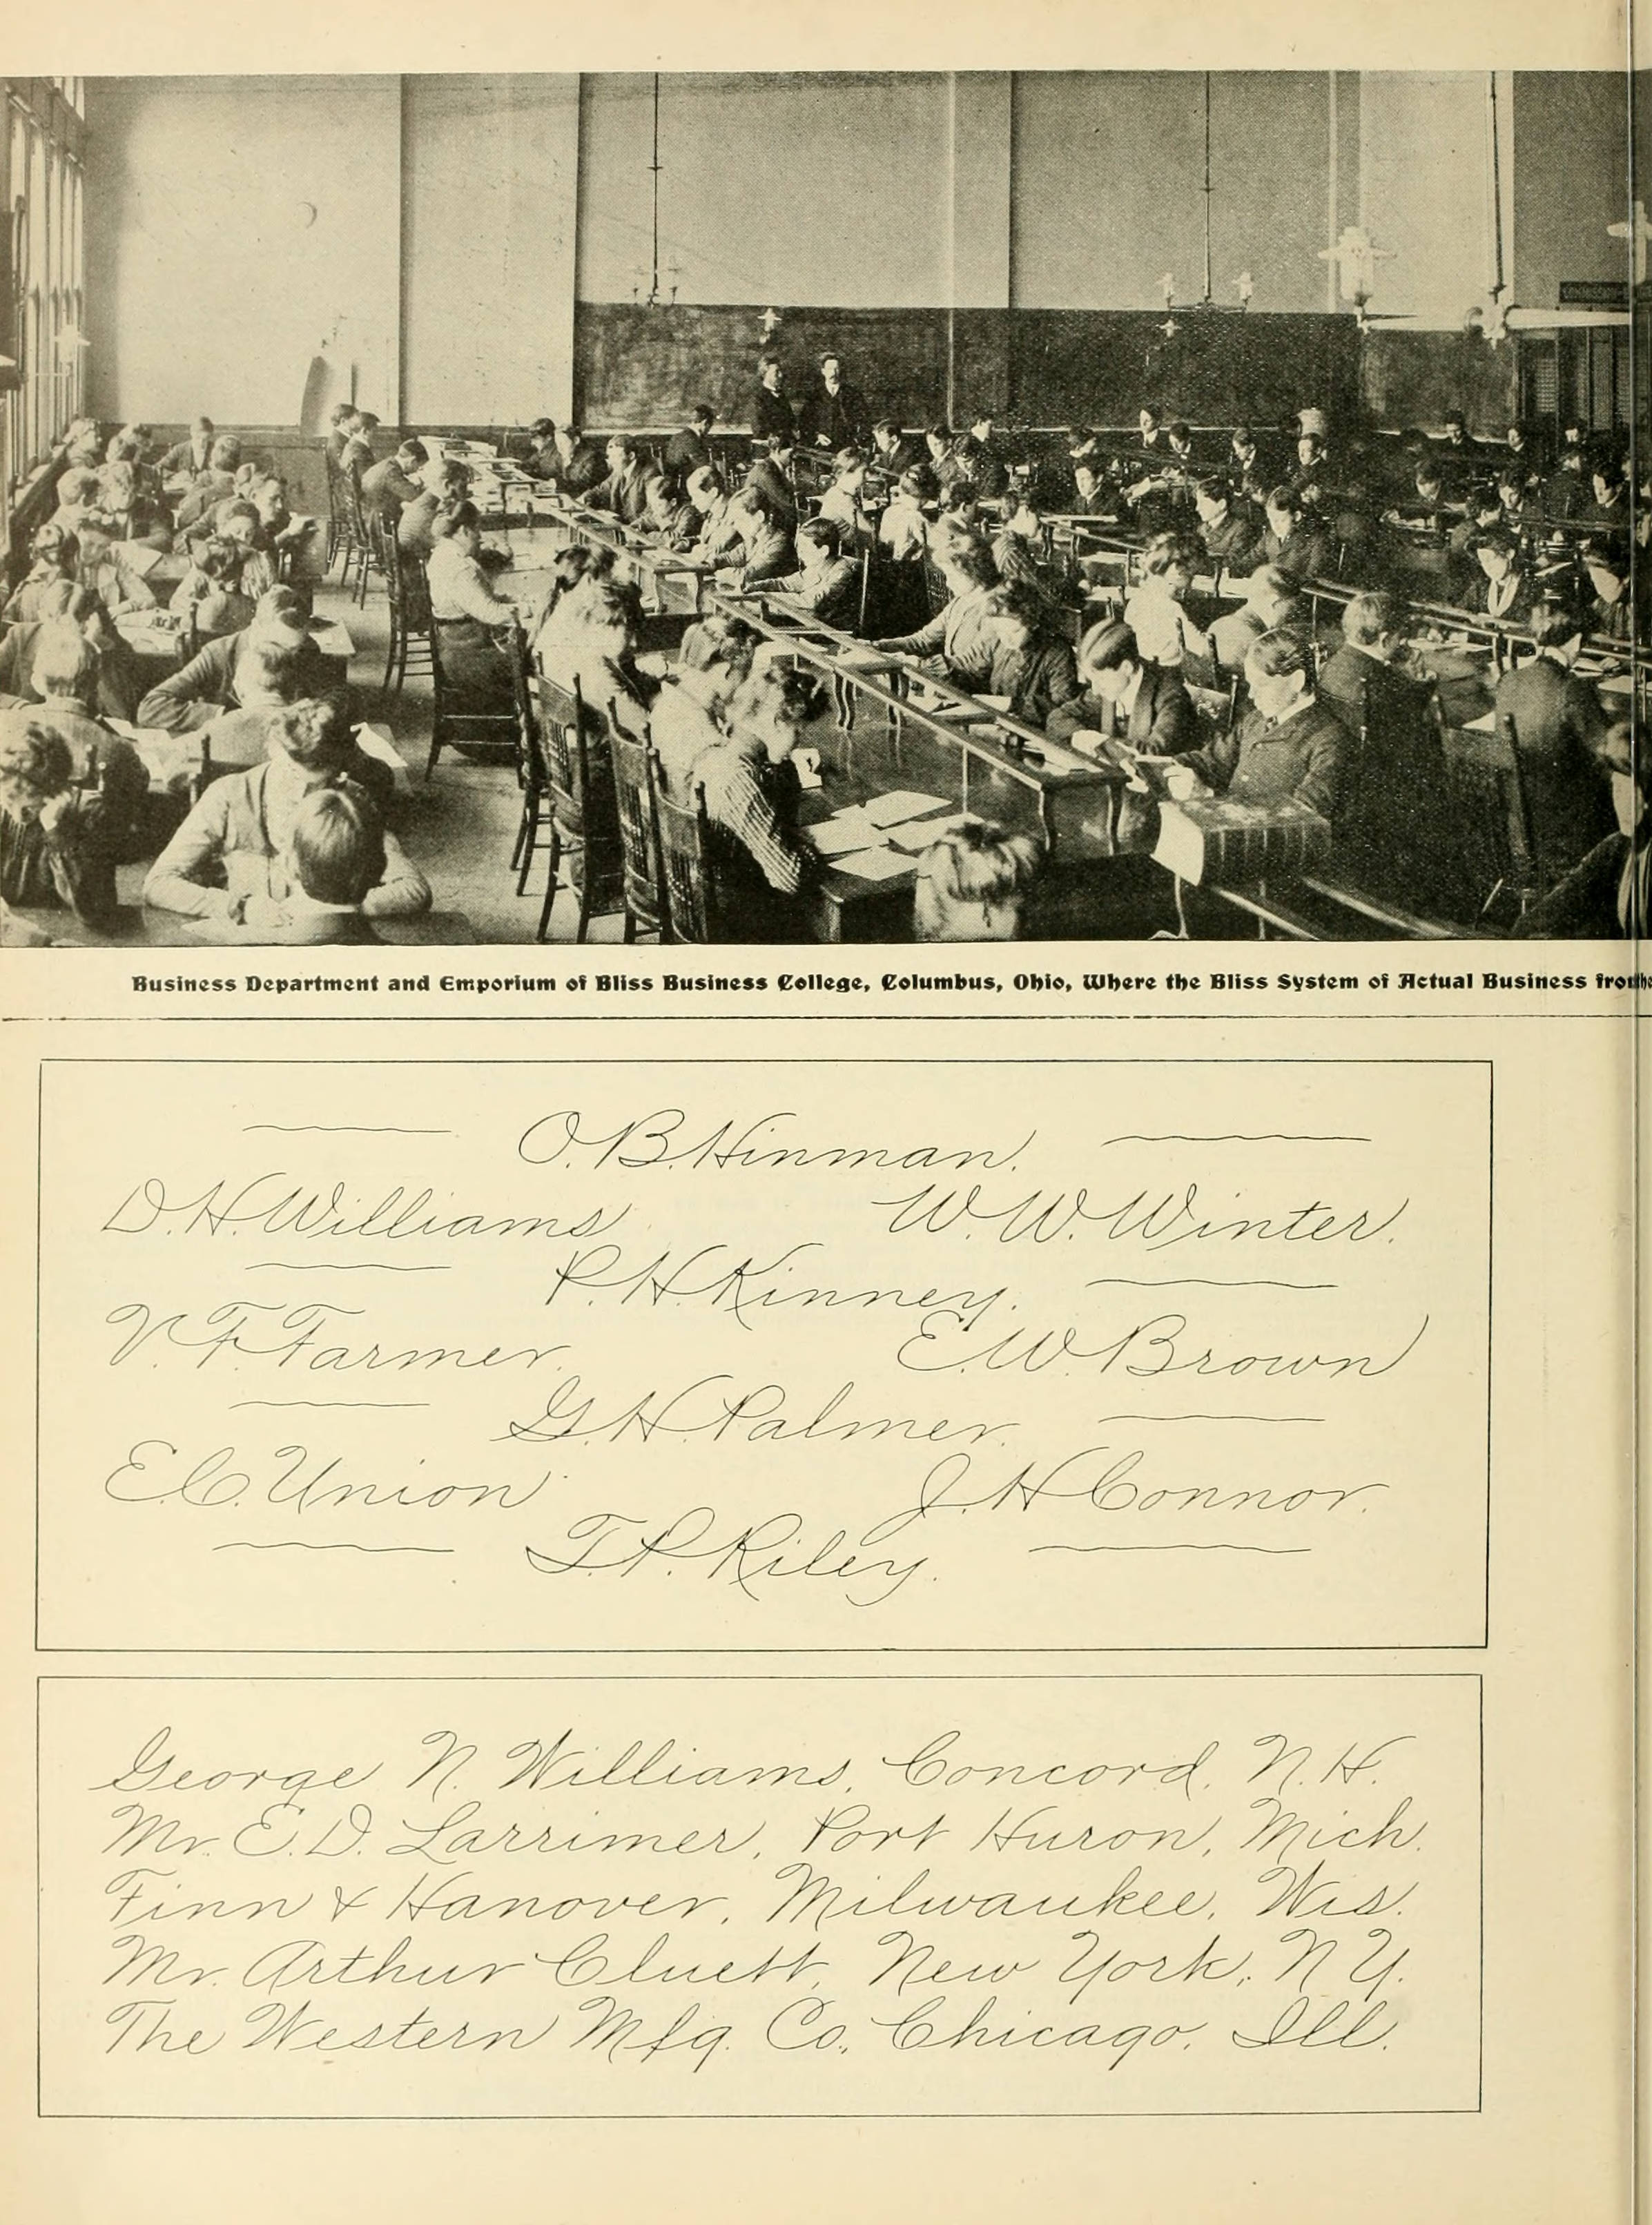 Business Department and Emporium of Bliss Business College, Columbus, Ohio, Where the Bliss System of Actual Business from
O. B. Hinman.
D. H. Williams
W. W. Winter.
P. H. Kinney.
V. F. Farmer.
E. W. Brown
G. H. Palmer.
E. C. Union
J. H. Connor.
T. P. Riley.
George N. Williams, Concord, N. H.
Mr. E. D. Larrimer, Port Huron, Mich.
Finn & Hanover, Milwaukee, Wis.
Mr. Arthur Cluett, New York, N Y.
The Western Mfg. Co., Chicago, Ill.